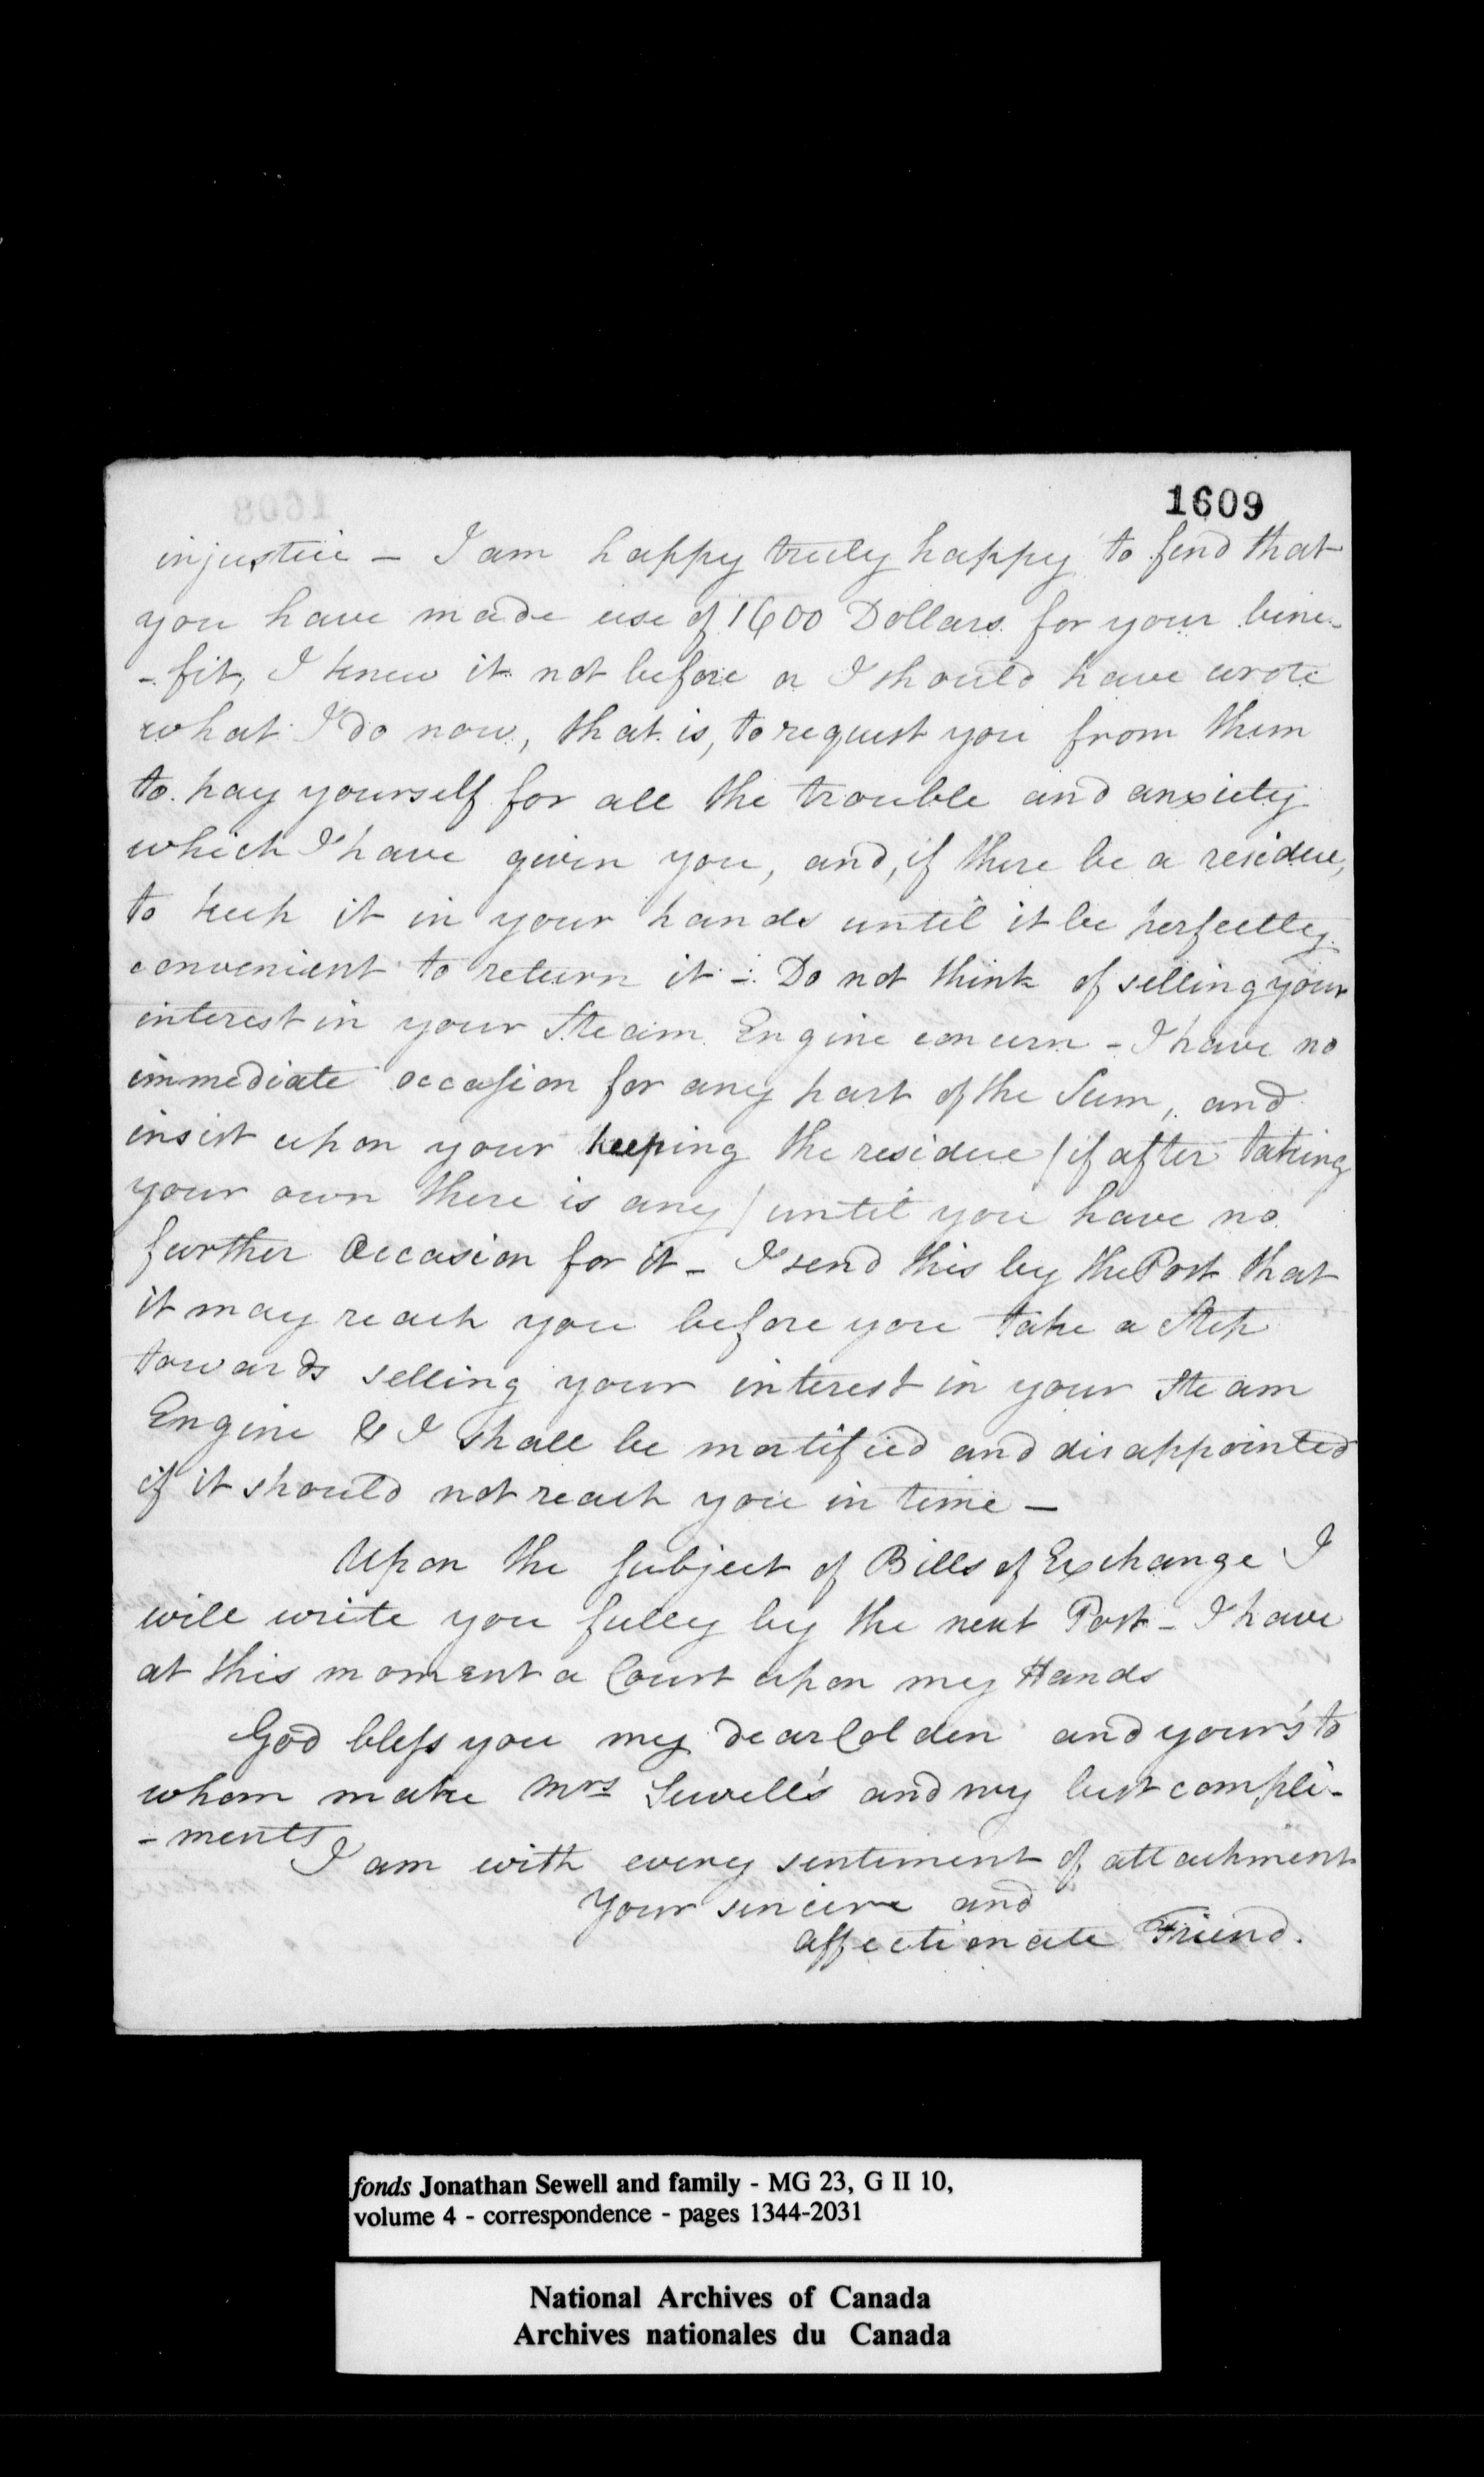 1609
injustice - I am happy truly happy to find that
you have made use of 1600 Dollars for your bene-
-fit, I knew it not before or I should have wrote
what I do now, that is, to request you from them
to pay yourself for all the trouble and anxiety
which I have given you, and, if there be a residue,
to keep it in your hands until it be perfectly
convenient to return it -. Do not think of selling your
interest in your Steam Engine concern - I have no
immediate occasion for any part of the Sum, and
insist upon your keeping the residue / if after taking
your own there is any / until you have no
further Occasion for it - I send this by the Post that
it may reach you before you take a Step
towards selling your interest in your Steam
Engine & I shall be mortified and disappointed
if it should not reach you in time -
Upon the Subject of Bills of Exchange I
will write you fully by the next Post - I have
at this moment a Court upon my Hands
God bless you my dear Colden and your's to
whom make Mrs Sewell's and my best compli-
-ments
I am with every sentiment of attachment
Your sincere and
affectionate Friend.
fonds Jonathan Sewell and family - MG 23, G II 10,
volume 4 - correspondence - pages 1344-2031
National Archives of Canada
Archives nationales du Canada